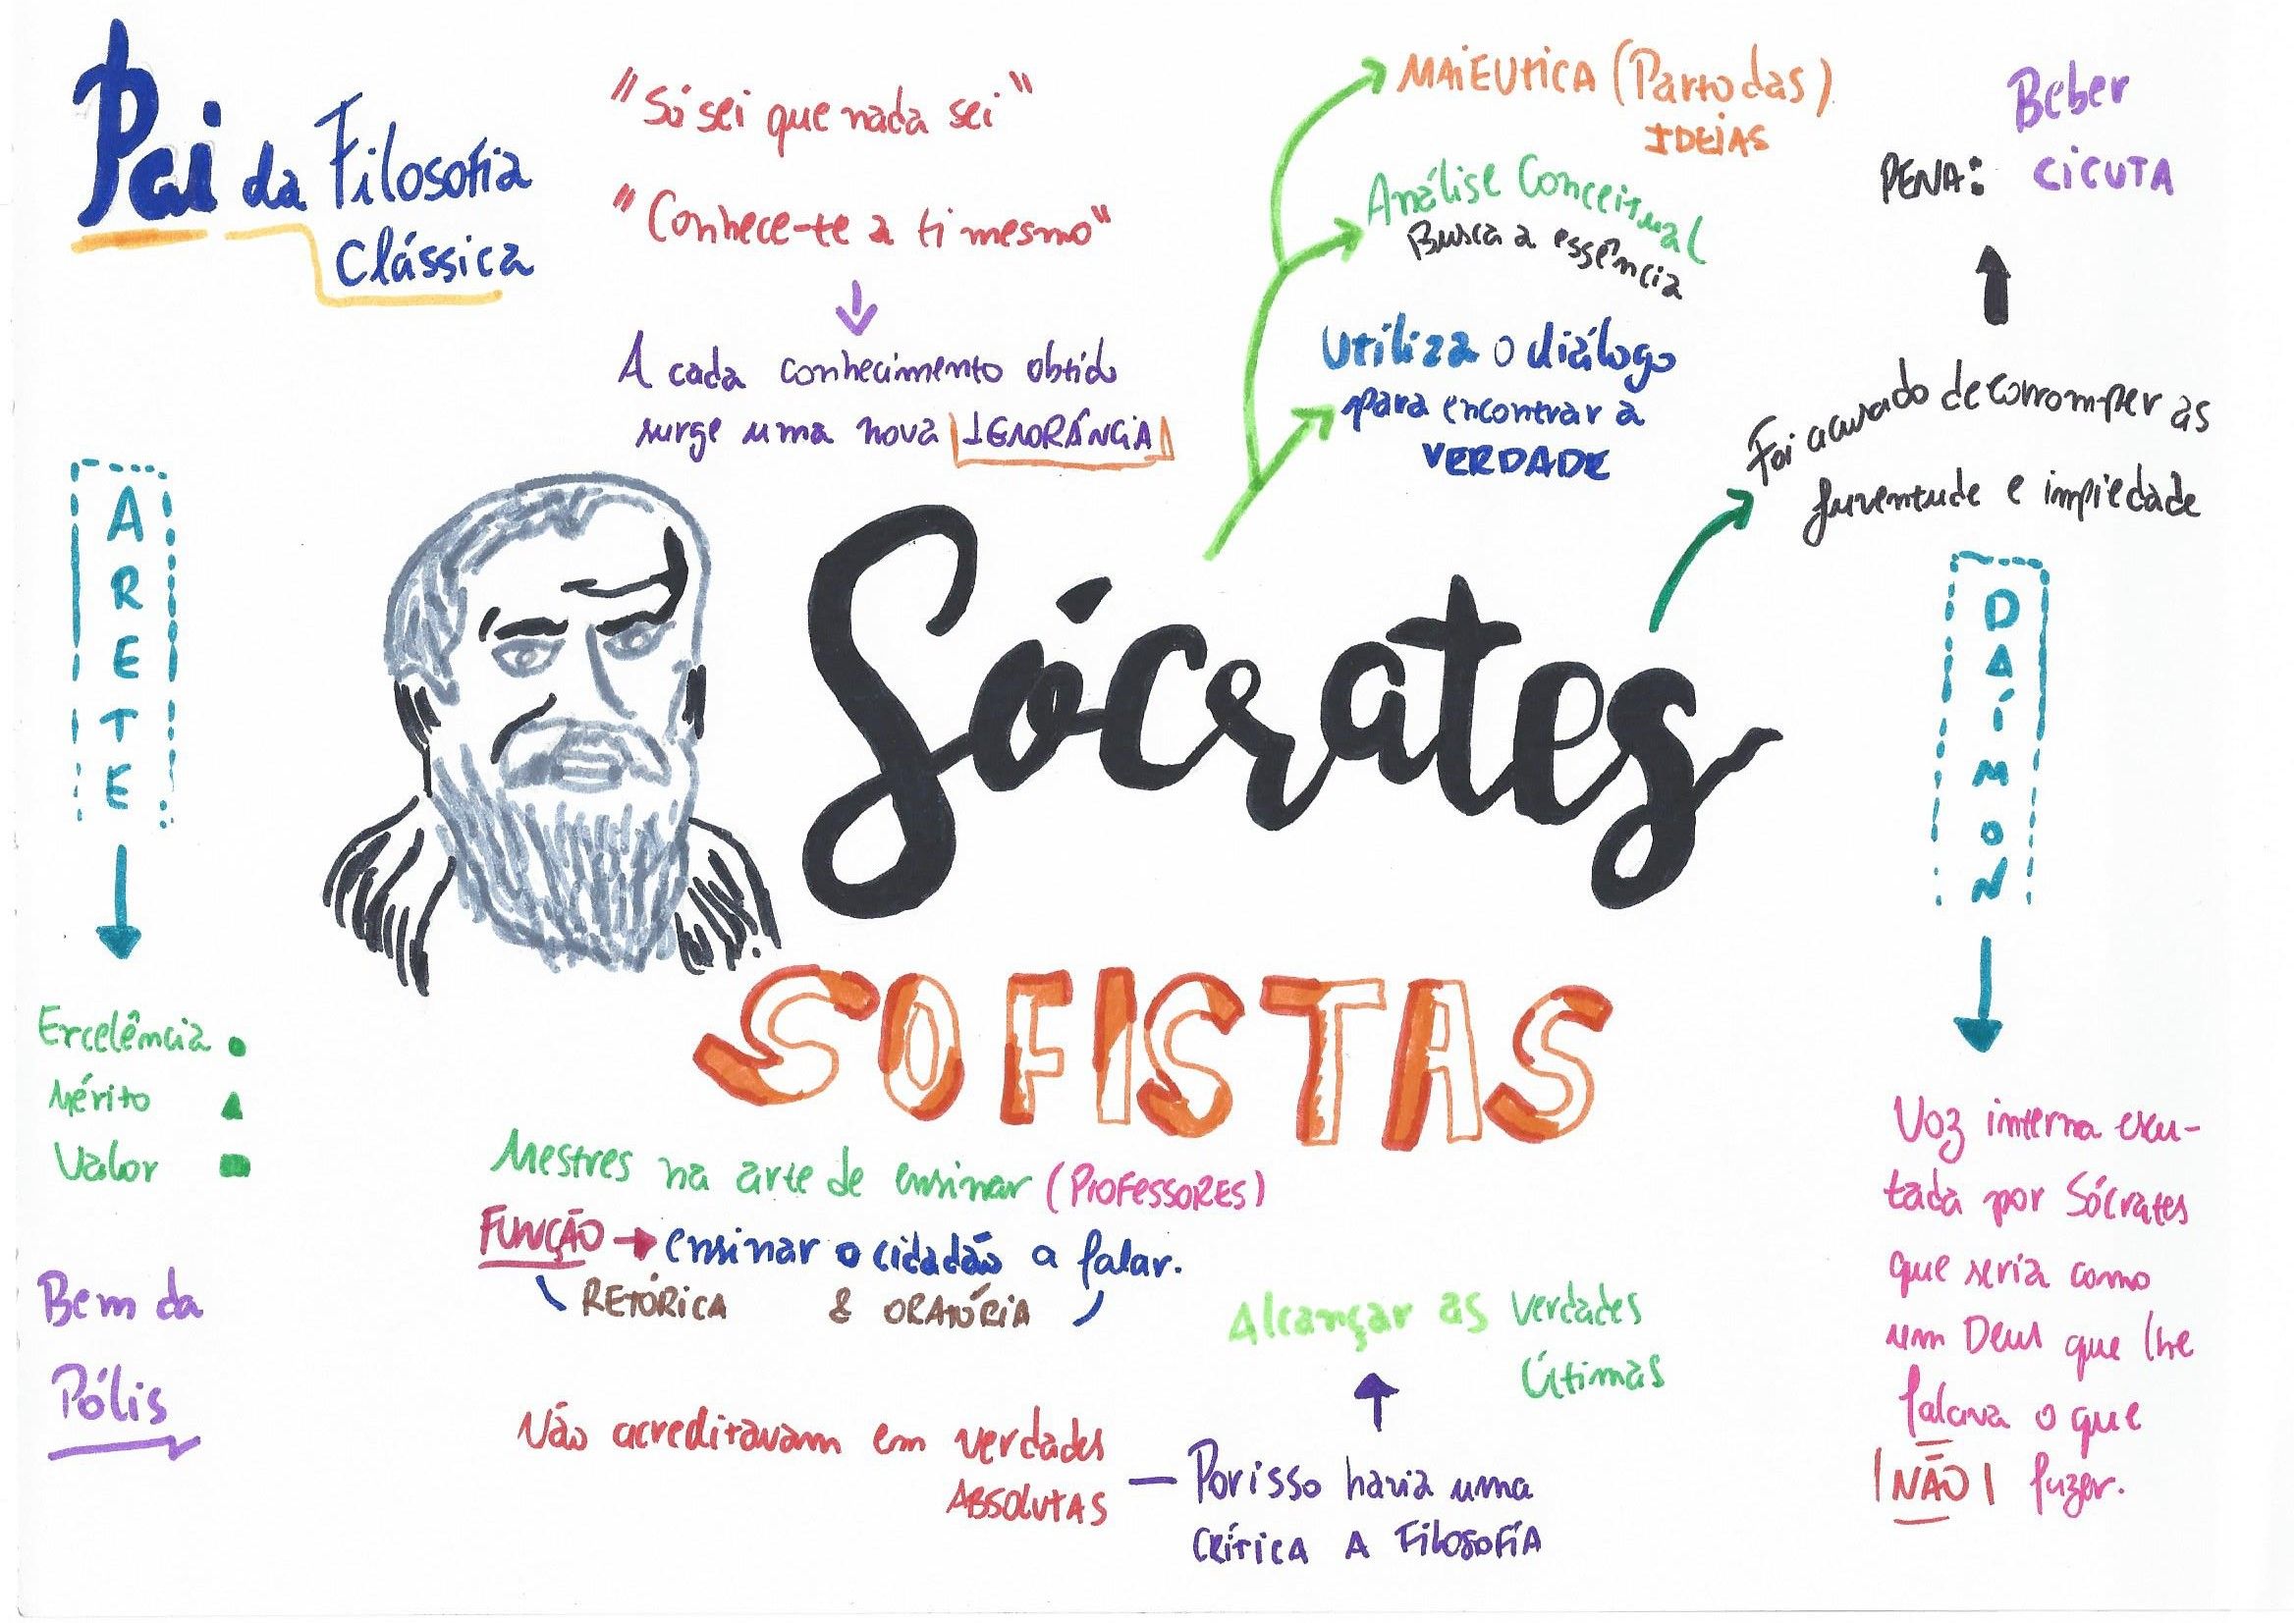 Pai da Filosofia
Clássica
"Só sei que nada sei"
"Conhece-te a ti mesmo"
A cada conhecimento obtido
surge uma nova IGNORÂNCIA
MAiEUtiCA (Parto das)
IDEiAS
Análise Conceitual
Busca a essência
Utiliza o diálogo
para encontrar a
VERDADE
Beber
PENA: CiCUTA
Foi acusado de corromper as
juventude e impiedade
ARETE
Excelência
Mérito
Valor
Bem da
Pólis
Sócrates
SOFISTAS
Mestres na arte de ensinar (PROFESSORES)
FUNÇÃO → ensinar o cidadão a falar.
RETÓRICA & ORATÓRIA
Alcançar as verdades
Últimas
Não acreditavam em verdades
ABSOLUTAS
— Por isso havia uma
CRÍTICA A FILOSOFÍA
DAÍMON
Voz interna escu-
tada por Sócrates
que seria como
um Deus que lhe
falava o que
NÃO fazer.